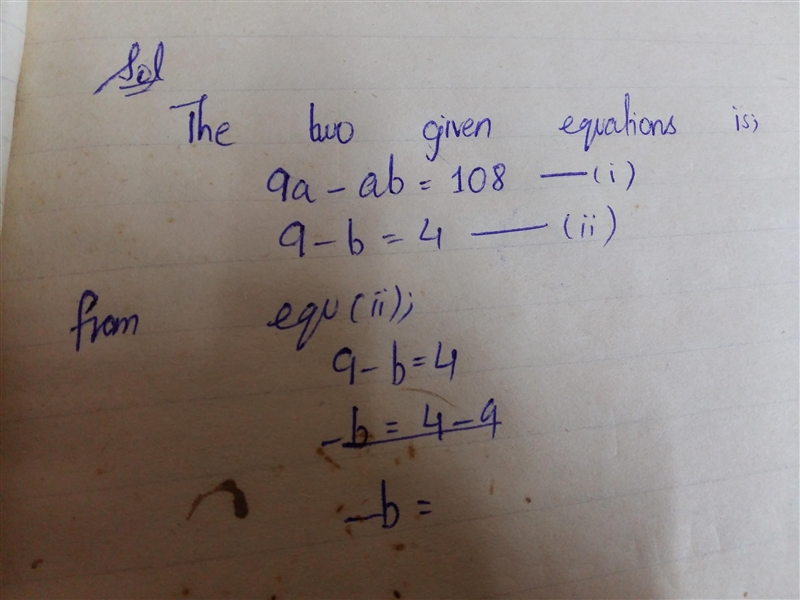 Sol
The two given equations is;
9a - ab = 108 —(i)
9 - b = 4 —— (ii)
from equ (ii);
9 - b = 4
-b = 4 - 9
-b =